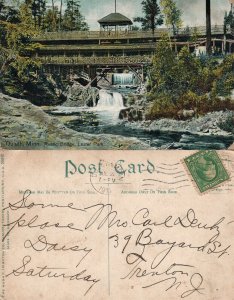 Duluth, Minn. Rustic Bridge, Lester Park.
Post Card.
Message May be Written on this Side.
Address Only on this Side.
Some
place
Daisy
Saturday
Mrs Carl Denby
39 Bayard St.
Trenton
N.J